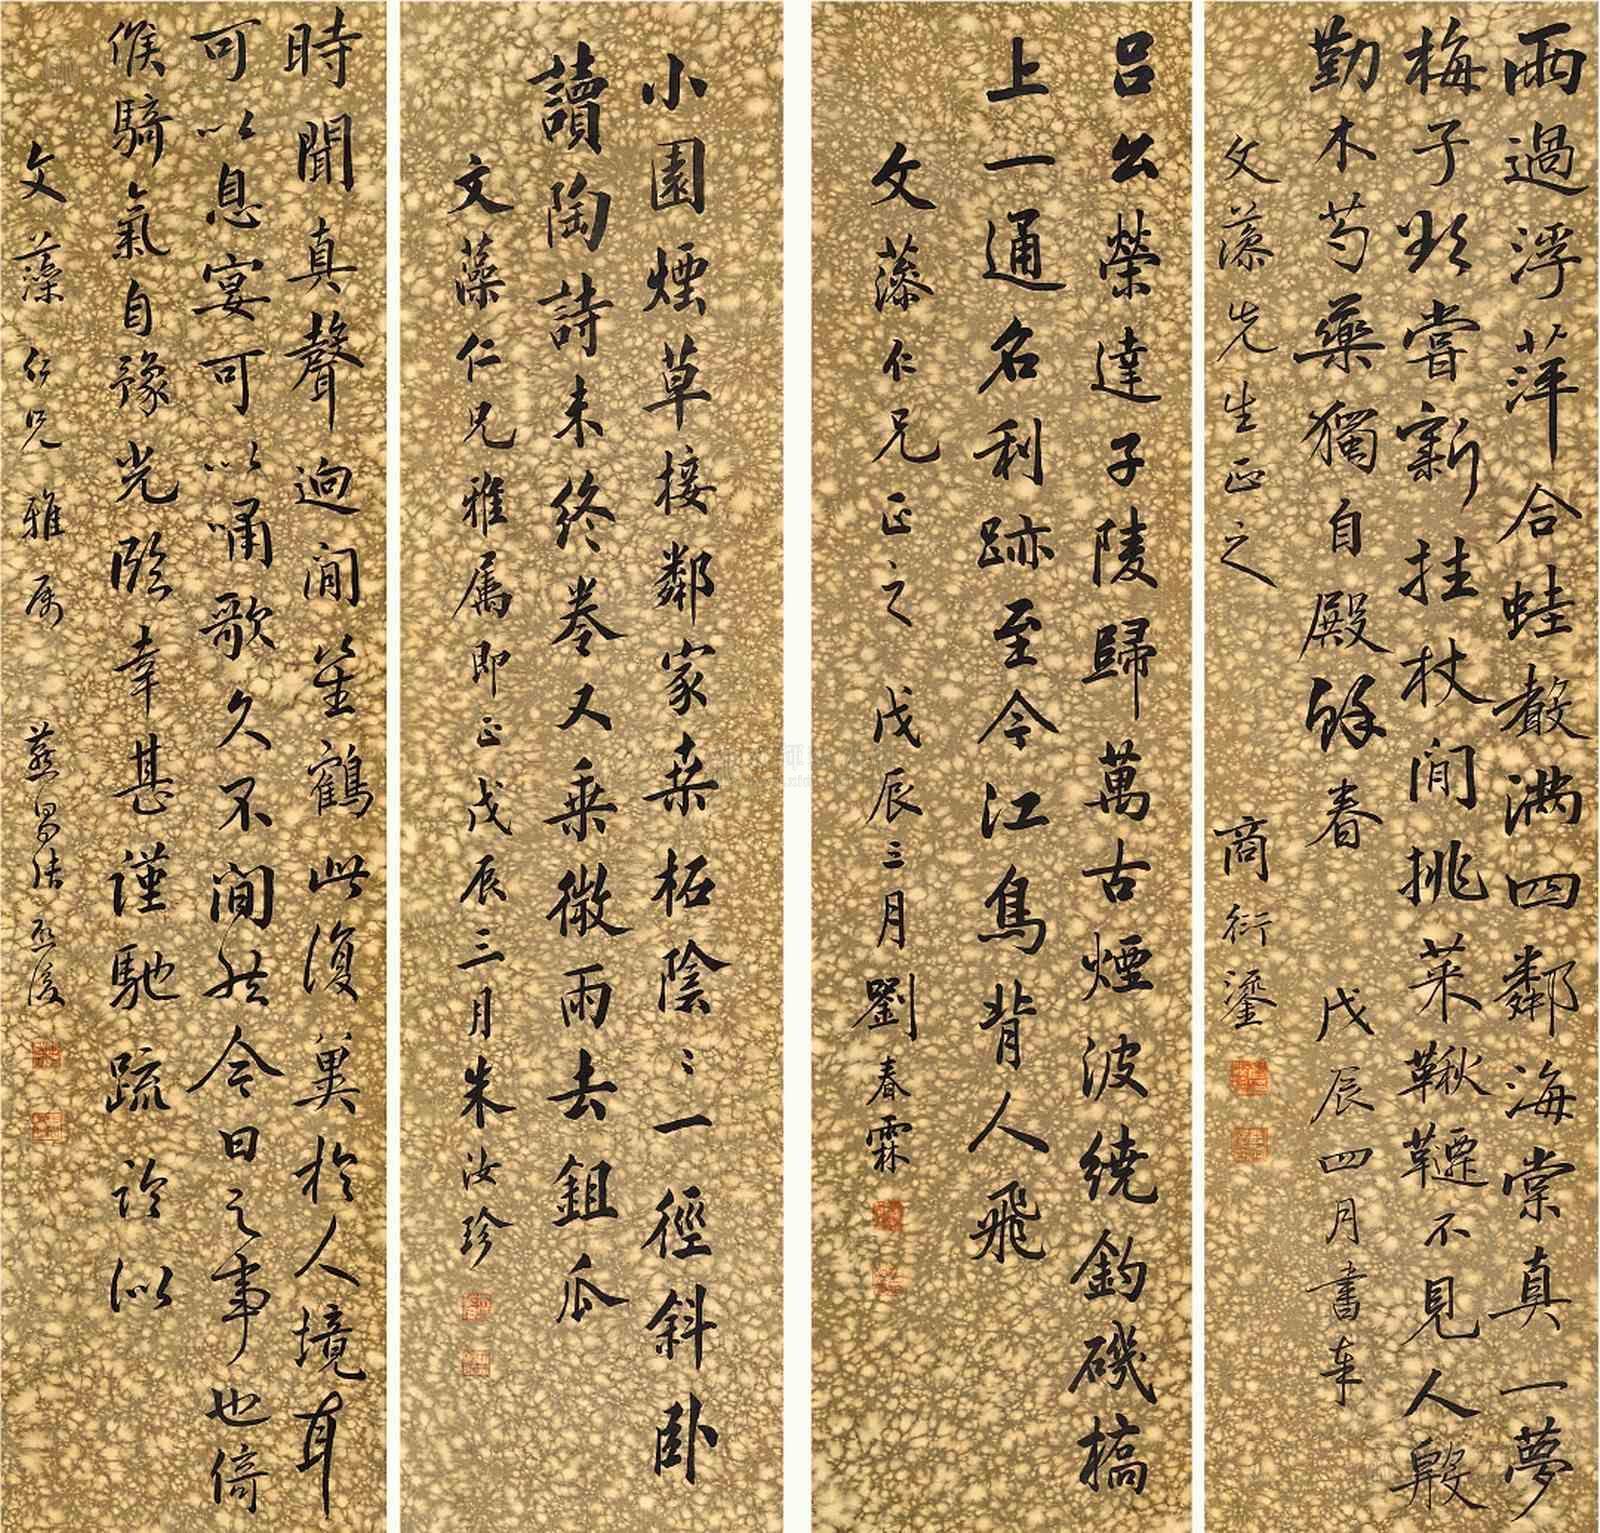 雨過浮萍合蛙聲滿四鄰海棠真一夢
梅子欲嘗新挂杖閒挑菜鞦韆不見人殷
勤木芍藥獨自殿餘春 戊辰四月書奉
文藻先生正之 商衍鎏
呂公榮達子陵歸萬古煙波繞釣磯橋
上一通名利跡至今江鳥背人飛
文藻仁兄正之 戊辰三月劉春霖
小園煙草接鄰家桑柘陰陰一徑斜臥
讀陶詩未終卷又乘微雨去鉏瓜
文藻仁兄雅屬即正戊辰三月朱汝珍
時聞真聲迥閒笙鶴此復巢於人境耳
可以息宴可以嘯歌久不閒然今日之事也倚
候騎氣自豫光臨幸甚謹馳疏診以
文藻仁兄雅屬